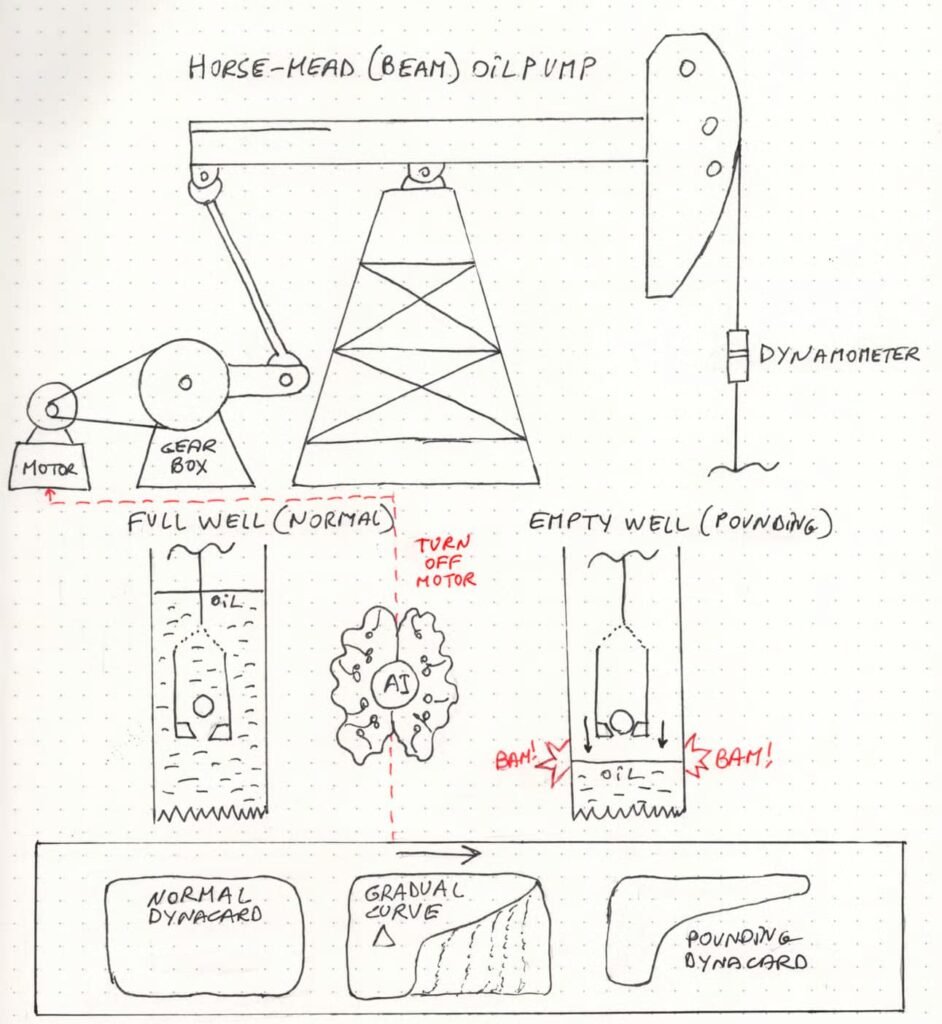 HORSE-HEAD (BEAM) OIL PUMP
DYNAMOMETER
MOTOR
GEAR
BOX
FULL WELL (NORMAL)
EMPTY WELL (POUNDING)
TURN
OFF
MOTOR
OIL
AI
BAM!
BAM!
OIL
NORMAL
DYNACARD
GRADUAL
CURVE
△
POUNDING
DYNACARD